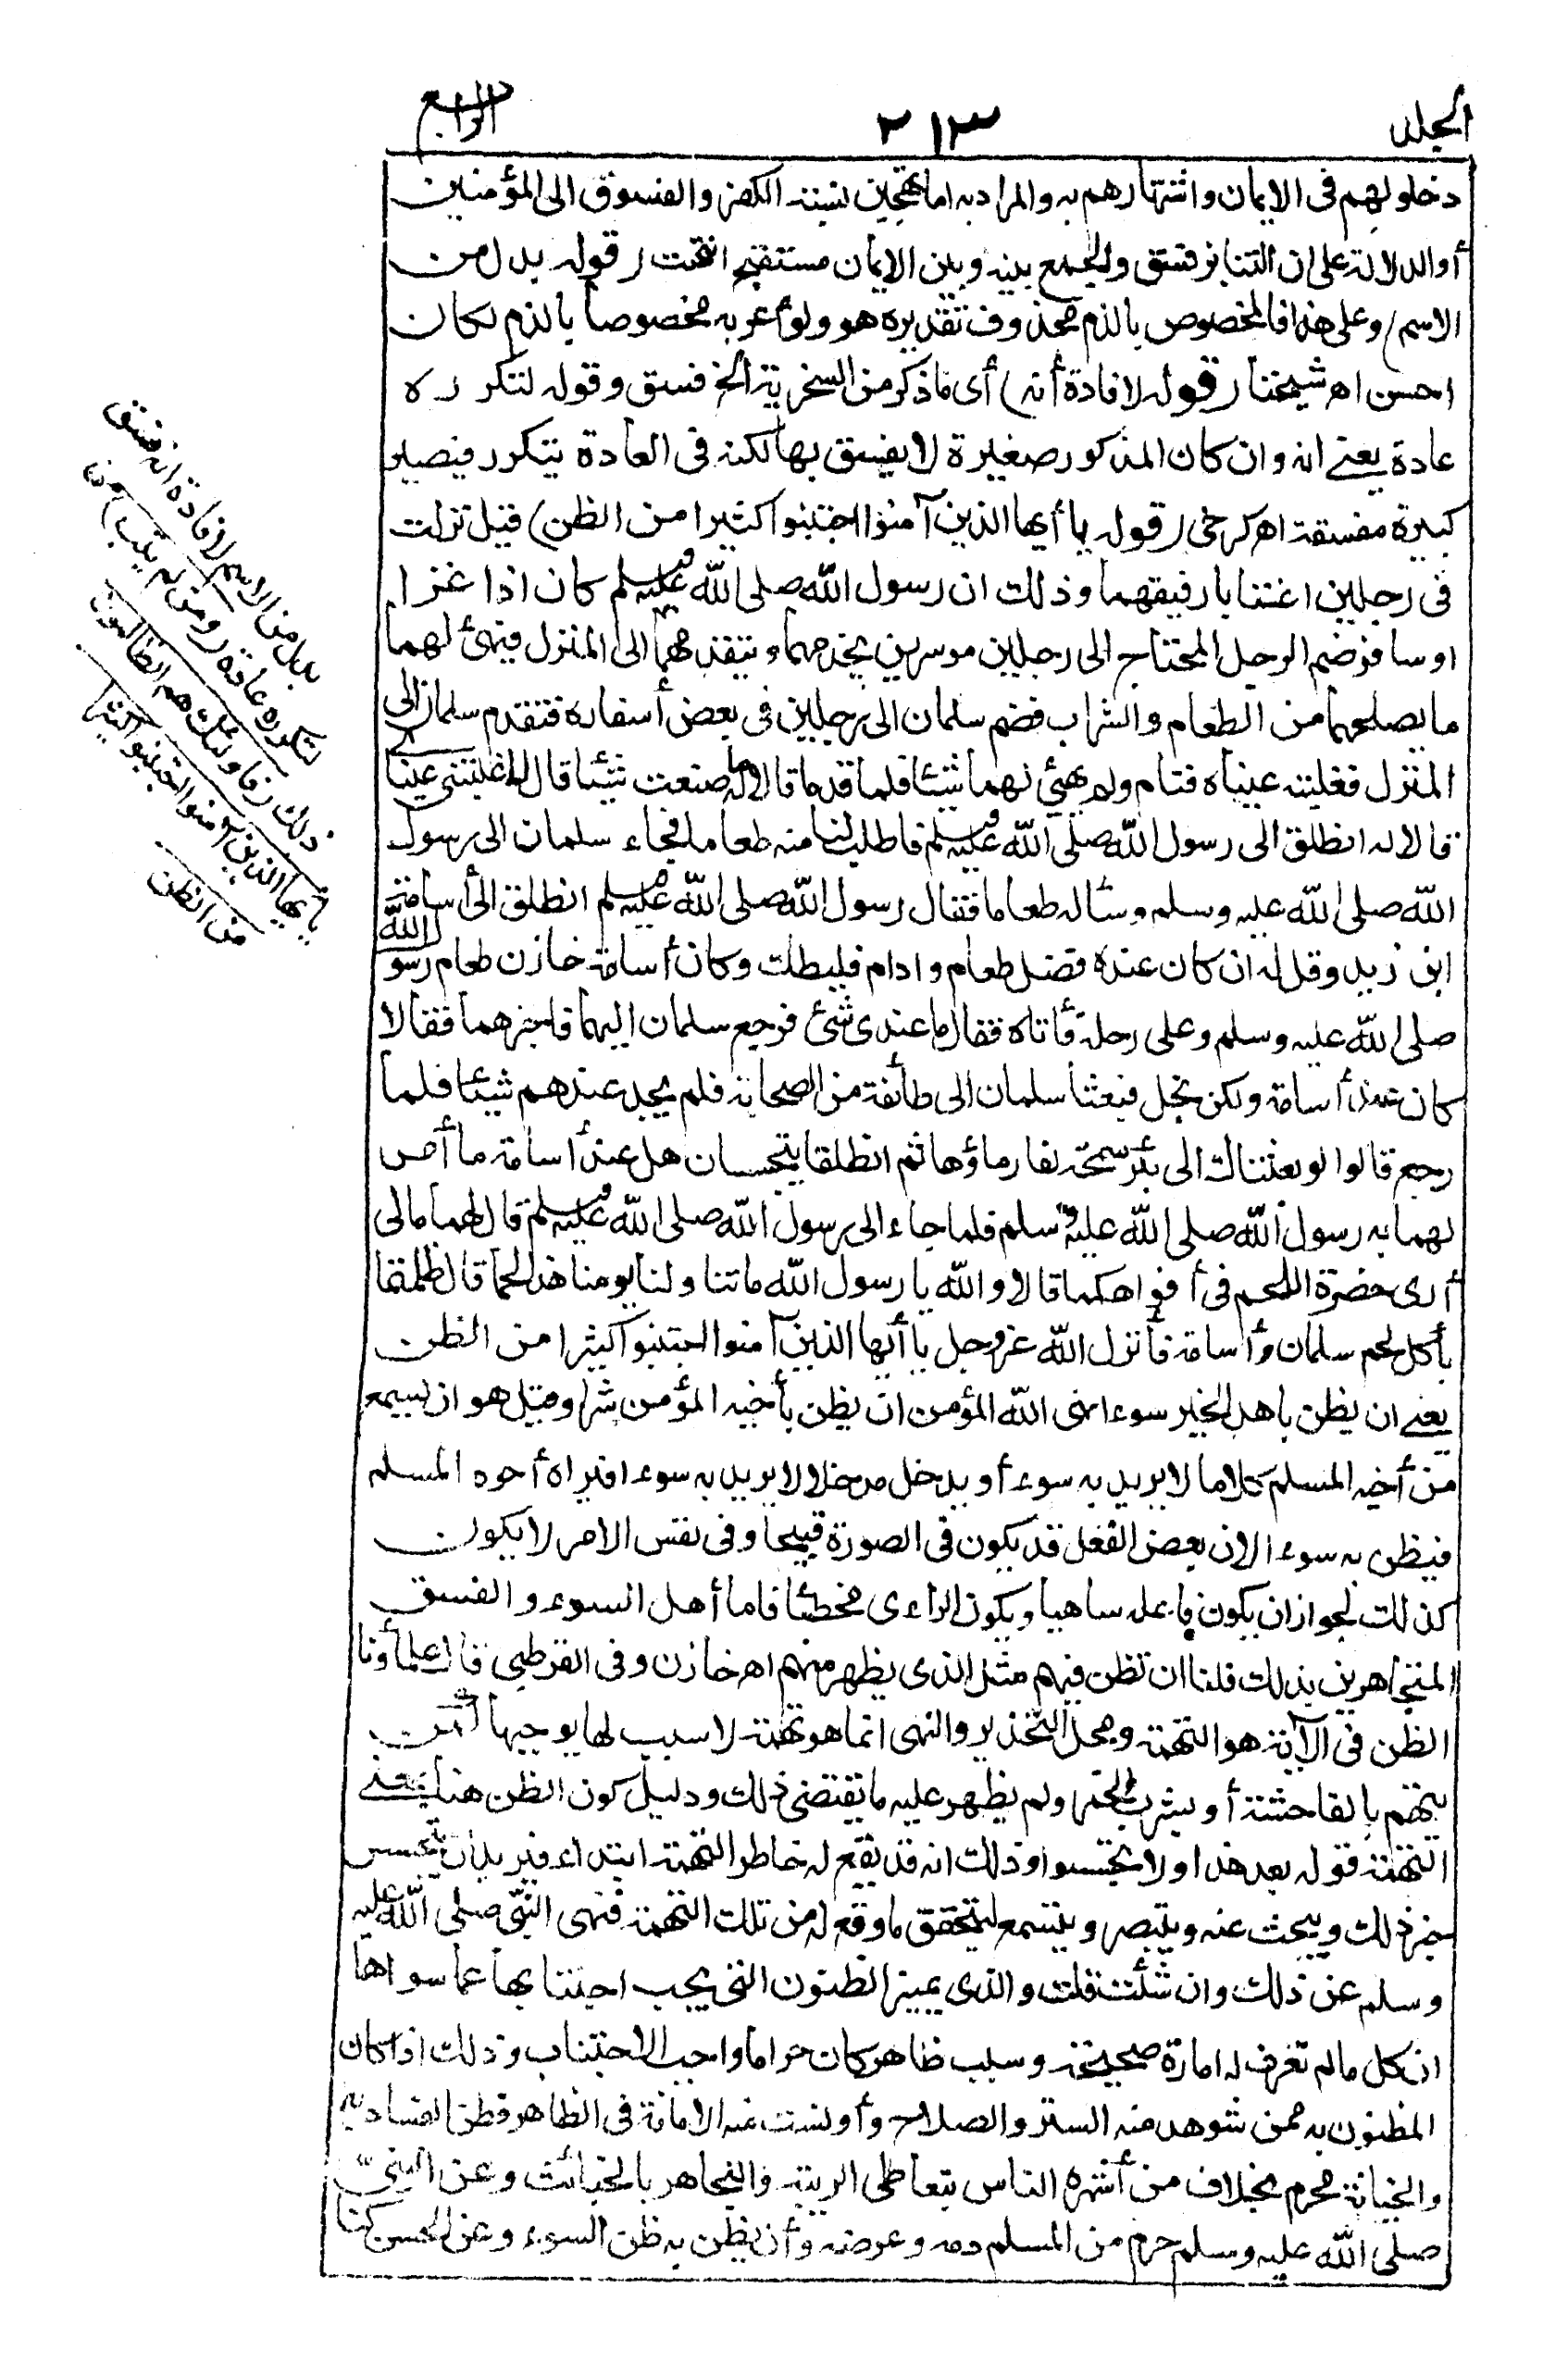 الجلد
٢١٣
الرابع
دخولهم فى الايمان واشتهارهم به والمراد به اما تهجين نسبة الكفر والفسوق الى المؤمنين
أو الدلالة على ان التنابز فسق والجمع بينه وبين الايمان مستقبح انتهت (قوله بدل من
الاسم) وعلى هذا فالمخصوص بالذم محذوف تقديره هو ولو أعربه مخصوصا بالذم لكان
احسن اه شيخنا (قوله لافادة أنه) أى ما ذكر من السخرية الخ فسق وقوله لتكرره
عادة يعنى انه وان كان المذكور صغيرة لا يفسق بها لكنه فى العادة يتكرر فيصير
كبيرة مفسقة اه كرخى (قوله يا أيها الذين آمنوا اجتنبوا كثيرا من الظن) قيل نزلت
فى رجلين اغتابا رفيقهما وذلك ان رسول الله صلى الله عليه وسلم كان اذا غزا
او سافر ضم الرجل المحتاج الى رجلين موسرين يخدمهما ويتقدمهما الى المنزل فيهئ لهما
ما يصلحهما من الطعام والشراب فضم سلمان الى رجلين فى بعض أسفاره فتقدم سلمان الى
المنزل فغلبته عيناه فنام ولم يهئ لهما شيئا فلما قدما قالا له ما صنعت شيئا قال لا غلبتنى عيناى
قالا له انطلق الى رسول الله صلى الله عليه وسلم فاطلب لنا منه طعاما فجاء سلمان الى رسول
الله صلى الله عليه وسلم وسأله طعاما فقال رسول الله صلى الله عليه وسلم انطلق الى أسامة
ابن زيد وقل له ان كان عنده فضل طعام وادام فليعطك وكان أسامة خازن طعام رسول الله
صلى الله عليه وسلم وعلى رحله فأتاه فقال ما عندى شئ فرجع سلمان اليهما فاخبرهما فقالا
كان عند أسامة ولكن بخل فبعثا سلمان الى طائفة من الصحابة فلم يجد عندهم شيئا فلما
رجع قالوا لو بعثناك الى بئر سمحة لغار ماؤها ثم انطلقا يتجسسان هل عند أسامة ما أمر
لهما به رسول الله صلى الله عليه وسلم فلما جاء الى رسول الله صلى الله عليه وسلم قال لهما مالى
أرى خضرة اللحم فى أفواهكما قالا والله يا رسول الله ما تناولنا يومنا هذا لحما قال ظللتما
بأكل لحم سلمان وأسامة فأنزل الله عز وجل يا أيها الذين آمنوا اجتنبوا كثيرا من الظن
يعنى ان يظن باهل الخير سوءا نهى الله المؤمن ان يظن بأخيه المؤمن شرا وقيل هو ان يسمع
من أخيه المسلم كلاما لا يريد به سوءا أو يدخل مدخلا لا يريد به سوءا فيراه أخوه المسلم
فيظن به سوءا لان بعض الفعل قد يكون فى الصورة قبيحا وفى نفس الامر لا يكون
كذلك لجواز ان يكون فاعله ساهيا ويكون الراءى مخطئا فاما أهل السوء والفسق
المتجاهرين بذلك فلنا ان نظن فيهم مثل الذى يظهر منهم اه خازن وفى القرطبى قال علماؤنا
الظن فى الآية هو التهمة ومحل التحذير والنهى انما هو تهمة لا سبب لها يوجبها كمن
يتهم بالفاحشة أو بشرب الخمر ولم يظهر عليه ما يقتضى ذلك ودليل كون الظن هنا بمعنى
التهمة قوله بعد هذا ولا تجسسوا وذلك انه قد يقع له خاطر التهمة ابتداء فيريد أن يتجسس
خبر ذلك ويبحث عنه ويتبصر ويتسمع ليتحقق ما وقع له من تلك التهمة فنهى النبى صلى الله عليه
وسلم عن ذلك وان شئت قلت والذى يميز الظنون التى يجب اجتنابها عما سواها
ان كل ما لم تعرف له امارة صحيحة وسبب ظاهر كان حراما واجب الاجتناب وذلك اذا كان
المظنون به ممن شوهد منه الستر والصلاح وأونست منه الامانة فى الظاهر فظن الفساد به
والخيانة محرم بخلاف من أشهره الناس بتعاطى الريبة والتجاهر بالخبائث وعن النبى
صلى الله عليه وسلم حرم من المسلم دمه وعرضه وأن يظن به ظن السوء وعن الحسن كنا
بدل من الاسم لافادة انه فسق
لتكرره عادة (ومن لم يتب) من
ذلك (فاولئك هم الظالمون
يا أيها الذين آمنوا اجتنبوا كثيرا
من الظن